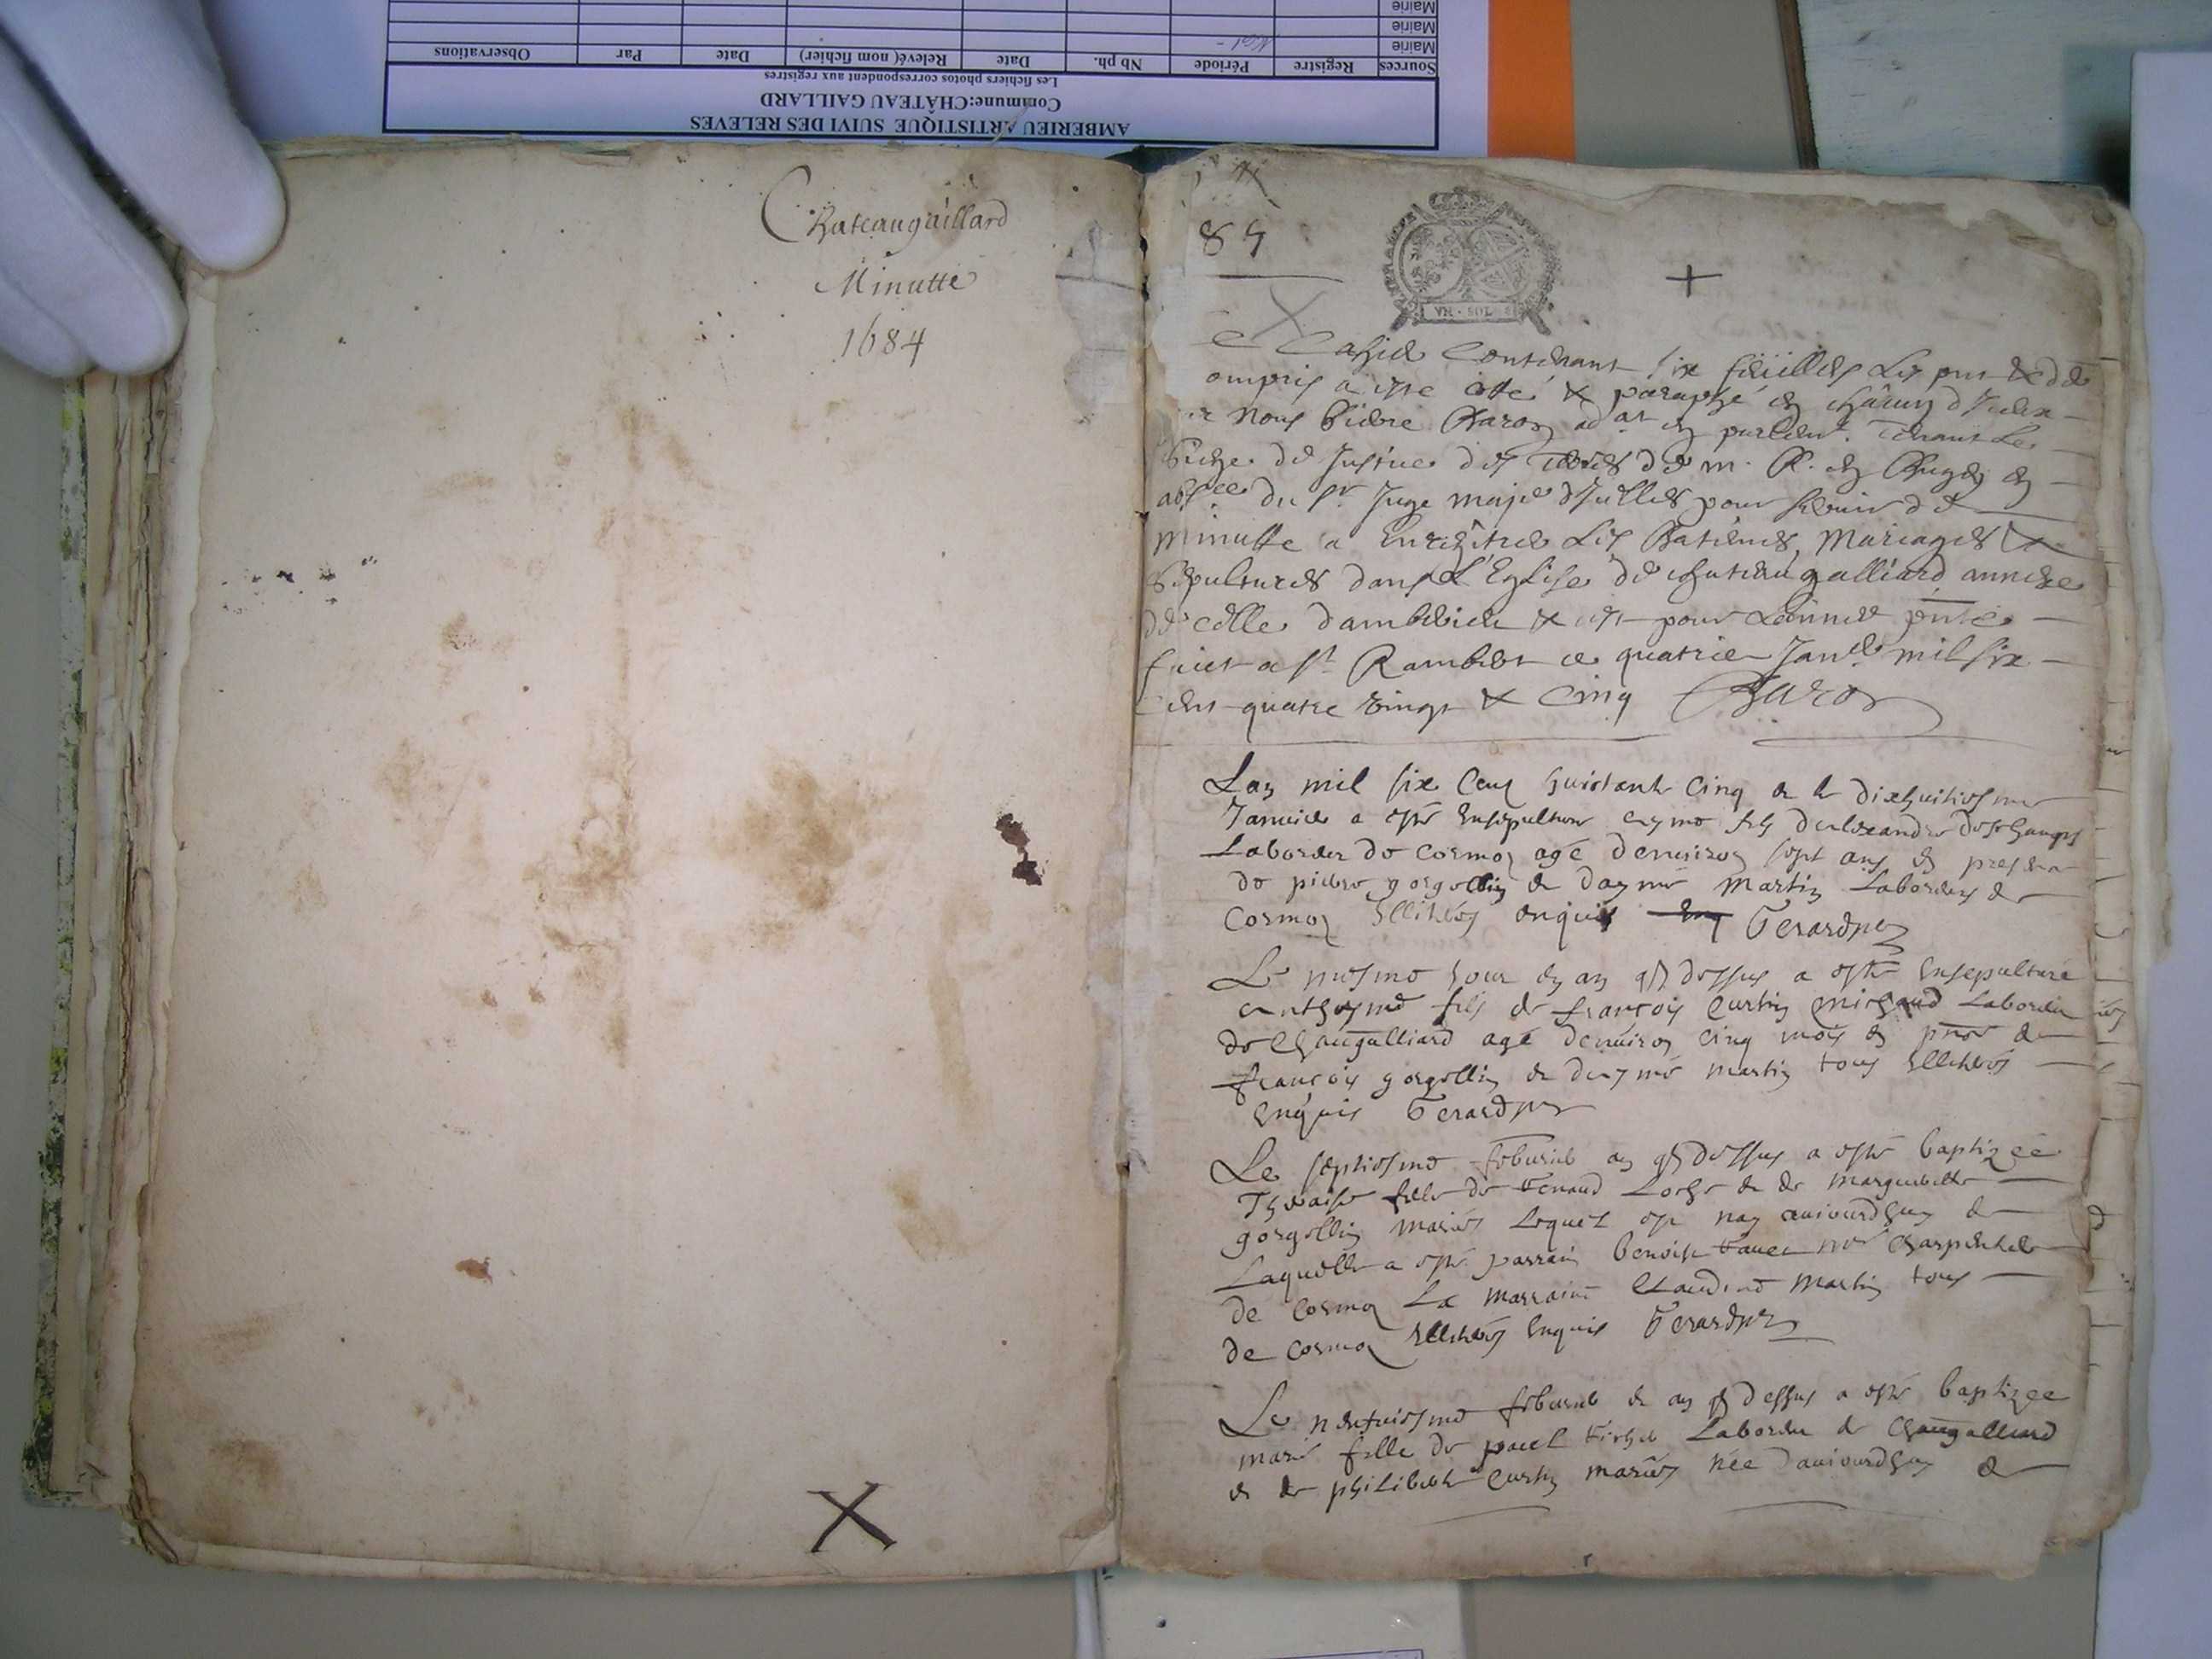 AMBERIEU ARTISTIQUE SUIVI DES RELEVES
Commune:CHÂTEAU GAILLARD
Les fichiers photos correspondent aux registres
Sources Registre Période Nb ph. Date Relevé(nom fichier) Date Par Observations
Mairie
Mairie
Mairie
Chateaugaillard
Minutte
1684
85
VN · SOL
Cahier Contenant six feüilles
ompris cotté & paraphé en châcun d'Icelux
nous Pierre Baron adat en parlemt. Tenant Le
Siege de Justice des Terres de m. R. en Bugey en
absce du sr Juge maje d'Icelles pour servir de
minutte a Enregîtrer Les Batêmes, Mariages &
Sepultures dans L'Eglise de chateaugalliard annexe
de celle d'amberieu & cest pour L'année pnte
faict a st Rambert ce quatrie Janver mil six
cent quatre vingt & Cinq Baron
Lan mil six Cent huictante Cinq & le dixhuitiesme
Janvier a esté Ensepulturé aymé fils d'alexandre deschamps
Laboreur de Cormoz agé denuiron sept ans en presence
de pierre gorgollin & d'aymé Martin Laboreurs de
Cormoz Illiterés enquis Gerard
Le mesme Jour & an qs dessus a esté Ensepulturé
anthoyme fils de françois Curtin michaud Laboreur
de Chaugalliard agé denuiron cinq mois en pnce de
françois gorgollin & d'aymé martin tous Illiterés
Enquis Gerard
Le septiesme feburier an qs dessus a esté baptizée
fille de Loche & de Margueritte
gorgollin mariés Lequel est nay auiourdhuy &
Laquelle a esté parrain benoist Charpentier
de Cormoz La marraine Claudine Martin tous
de Cormoz Illiterés Enquis Gerard
Le neufuiesme feburier & an qs dessus a esté baptizée
marie fille de paul Laboreur de Chaugalliard
& de philiberte Curtin mariés née dauiourdhuy &